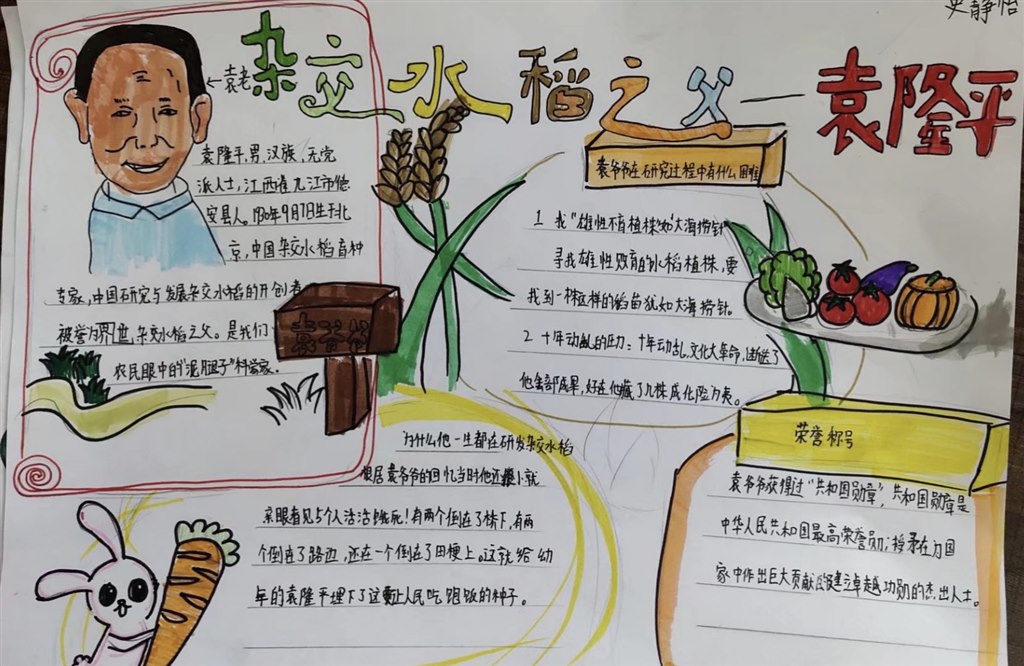 史静怡
杂交水稻之父——袁隆平
←袁老
袁隆平,男,汉族,无党
派人士,江西省九江市德
安县人。1930年9月7日生于北
京,中国杂交水稻育种
专家,中国研究与发展杂交水稻的开创者
被誉为界世杂交水稻之父。是我们
农民眼中的"泥腿子"科学家.
袁爷爷
袁爷爷在研究过程中有什么困难
1 找"雄性不育植株"如"大海捞针"
寻找雄性败育的水稻植株,要
找到一株这样的稻苗犹如大海捞针。
2 十年动乱的压力、十年动乱,文化大革命,
他全部成果,好在他藏了几株成化险为夷。
为什么他一生都在研发杂交水稻
根居袁爷爷的回忆当时他还很小就
亲眼看见5个人活活饿死!有两个倒在了桥下,有两
个倒在了路边,还在一个倒在了田梗上。这就给幼
年的袁隆平埋下了这让人民吃饱饭的种子.
荣誉称号
袁爷爷获得过"共和国勋章",共和国勋章是
中华人民共和国最高荣誉勋,授予在为国
家中作出巨大贡献 建立卓越功勋的杰出人士。